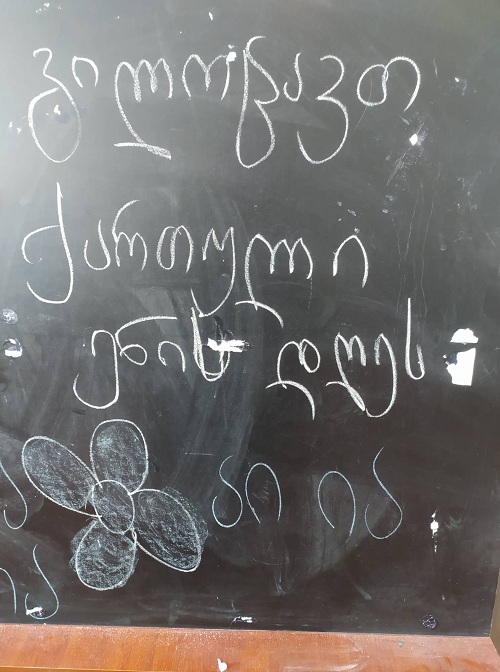 გილოცავთ
ქართული
ენის დღეს
აი ია